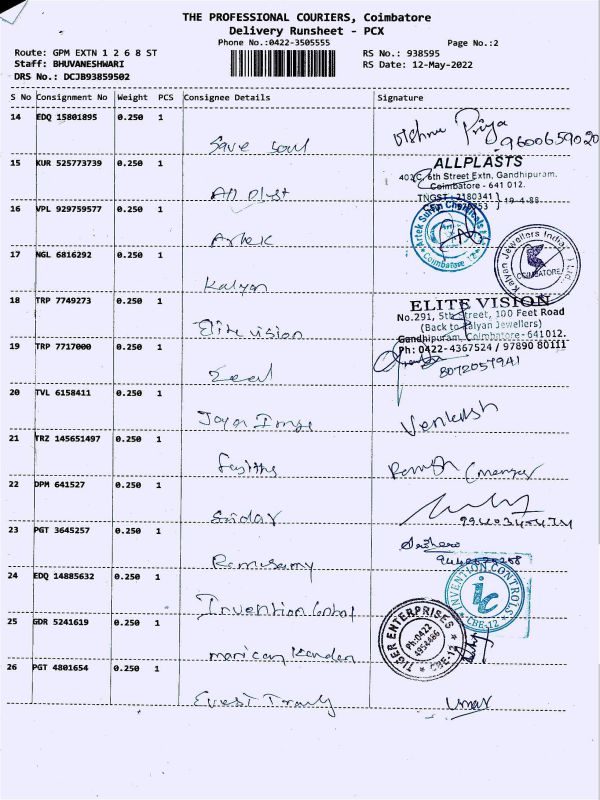 THE PROFESSIONAL COURIERS, Coimbatore
Delivery Runsheet - PCX
Phone No.:0422-3505555
Page No.:2
Route: GPM EXTN 1 2 6 8 ST
RS No.: 938595
Staff: BHUVANESHWARI
RS Date: 12-May-2022
DRS No.: DCJB93859502
S No Consignment No Weight PCS Consignee Details Signature
14 EDQ 15801895 0.250 1
Save soul
Vishnu Priya
9600659020
15 KUR 525773739 0.250 1
All plast
ALLPLASTS
402C, 6th Street Extn, Gandhipuram,
Coimbatore - 641 012.
TNGST - 2180341
19-4-88
16 VPL 929759577 0.250 1
Artek
Artek Surfin Chemicals
Coimbatore
17 NGL 6816292 0.250 1
Kalyan
Kalyan Jewellers India Ltd.
COIMBATORE
18 TRP 7749273 0.250 1
Elite vision
ELITE VISION
No.291, 5th Street, 100 Feet Road
(Back to Kalyan Jewellers)
Gandhipuram, Coimbatore - 641 012.
Ph: 0422-4367524 / 97890 80111
19 TRP 7717000 0.250 1
8072057941
20 TVL 6158411 0.250 1
Venkatesh
21 TRZ 145651497 0.250 1
22 DPM 641527 0.250 1
Sridar
23 PGT 3645257 0.250 1
Ramasamy
24 EDQ 14885632 0.250 1
Invention Control
INVENTION CONTROLS
ic
CBE-12
25 GDR 5241619 0.250 1
TIGER ENTERPRISES
Ph:0422
4954486
CBE-12
26 PGT 4801654 0.250 1
Umar